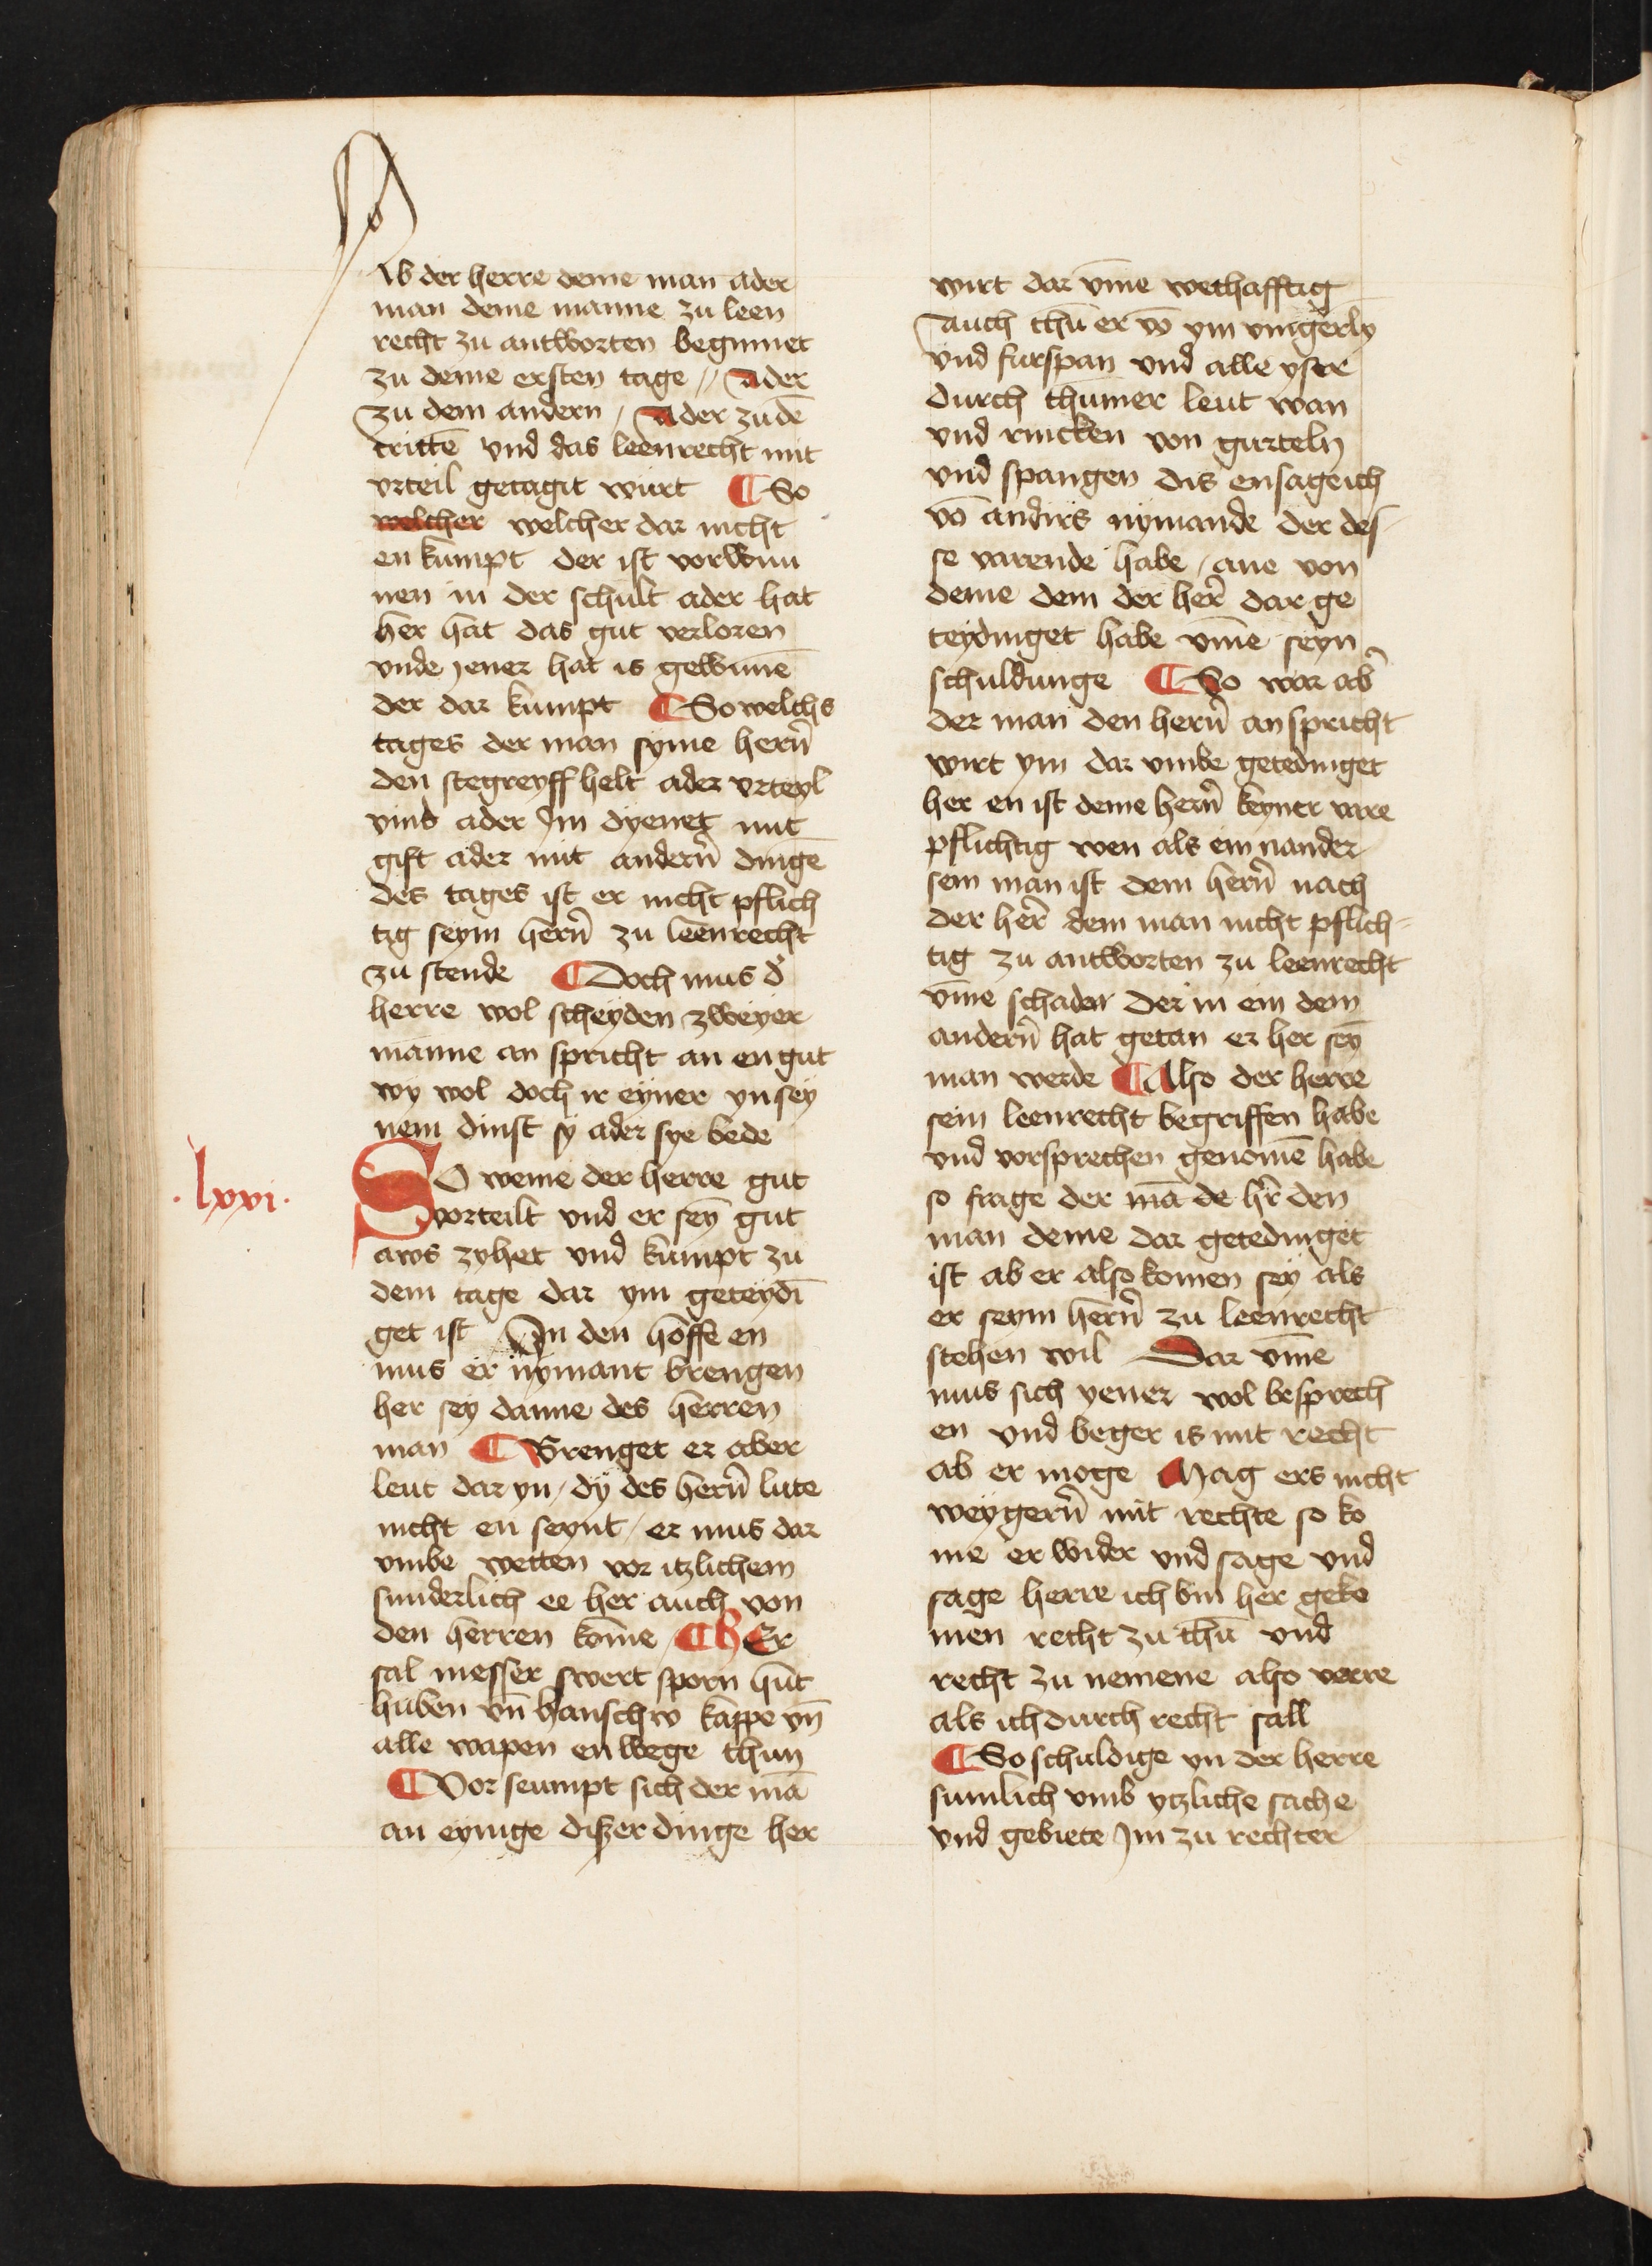 Ab der herre deme man ader
man deme manne zu leen
recht zu antworten beginnet
zu deme ersten tage // Ader
zu dem andern / Ader zu dē
trittē vnd das leenrecht mit
vrteil getagit wurt ¶ So
welcher welcher dar nicht
en kumpt der ist vorwun
nen in der schult ader hat
her hat das gut verloren
vnde jener hat is gewūnē
der dar kumpt ¶ So welchs
tages der man syme herñ
den stegreyff helt ader vrteyl
vind ader Im dyenet mit
gift ader mit anderñ dingē
des tages ist er nicht pflich
tig seym herñ zu leenrecht
zu stende ¶ Doch mus d̛
herre wol scheyden zweyer
manne an spricht an en gut
wy wol doch ir eyner yn sey
nem dinst sy ader sye bede
·lxxvi·
SO weme der herre gut
vorteilt vnd er seyn gut
aws zyhet vnd kumpt zu
dem tage dar ym geteydī
get ist In den hoffe en
mus er nymant brengen
her sey danne des herren
man ¶ Brenget er aber
leut dar yn / dy des herñ lute
nicht en seynt / er mus dar
vmbe wetten vor itzlichem
sunderlich ee her auch von
den herren kome / ¶ Er
sal messer swert sporn hut
huben vñ hanschw kappe vñ
alle wapen en wege thun
¶ Vor seumpt sich der mā
an eynige diszer dinge her
wirt dar vm̄e wethafftig
Auch thu er vō ym vingerly
vnd furspan vnd alle yser
durch thumer leut wan
vnd rincken von gurteln
vnd spangen dis en sage ich
vō andirs nymande der des-
se varende habe / ane von
deme dem der her̄ dar ge
teydinget habe vm̄e seyn
schuldunge ¶ So war ab̛
der man den herñ an spricht
wirt ym dar vmbe getedinget
her en ist deme herñ keyner were
pflichtig wen als ein nander
sein man ist dem herñ nach
der her̄ dem man nicht pflich-
tig zu antworten zu leenrecht
vm̄e schaden der in ein dem
anderñ hat getan er her sey
man werde ¶ Also der herre
sein leenrecht begriffen habe
vnd vorsprechen genomē habe
so frage der mā de h̄r den
man deme dar getedinget
ist ab er also komen sey als
er seym herñ zu leenrecht
stehen wil Dar vm̄e
mus sich yener wol besprech
en vnd beger is mit recht
ab er moge Mag ers nicht
weygerñ mit rechte so ko
me er wider vnd sage vnd
sage herre ich bin her geko
men recht zu thū vnd
recht zu nemene also verre
als ich durch recht sall
¶ So schuldige yn der herre
sumlich vmb ytzliche sache
vnd gebiete Im zu rechter